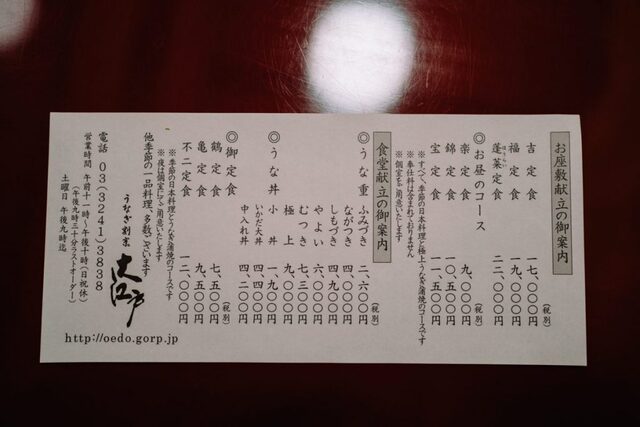 お座敷献立の御案内
(税別)
吉定食 一七、〇〇〇円
福定食 一九、〇〇〇円
蓬莱定食 二二、〇〇〇円
◎お昼のコース
(税別)
楽定食 九、〇〇〇円
錦定食 一〇、五〇〇円
宝定食 一一、五〇〇円
※すべて季節の日本料理と極上うなぎ蒲焼のコースです
※奉仕料は含まれておりません
※個室をご用意いたします
食堂献立の御案内
(税別)
◎うな重 ふみづき 二、六〇〇円
ながつき 四、〇〇〇円
しもづき 四、九〇〇円
やよい 六、〇〇〇円
むつき 七、三〇〇円
極上 九、〇〇〇円
◎うな丼 小丼 一、九〇〇円
いかだ大丼 四、四〇〇円
中入れ丼 四、二〇〇円
◎御定食
(税別)
鶴定食 七、五〇〇円
亀定食 九、五〇〇円
不二定食 一二、〇〇〇円
※季節の日本料理とうなぎ蒲焼のコースです
※夜は個室にてご用意いたします
他季節の一品料理、多数ございます
うなぎ割烹 大江戸
電話 03(3241)3838
営業時間 午前十一時〜午後十時(日祝休)
(午後九時三十分ラストオーダー)
土曜日 午後九時迄
http://oedo.gorp.jp